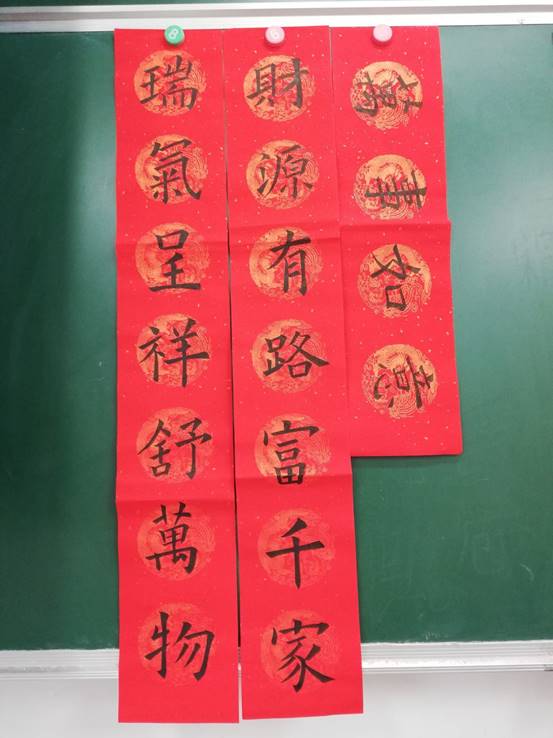 萬事如意
財源有路富千家
瑞氣呈祥舒萬物
8